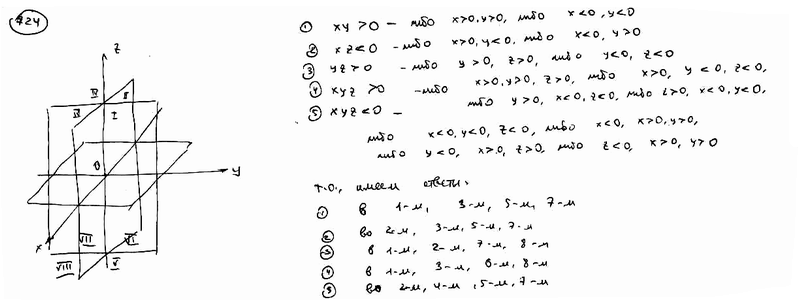 724
z
IV II
III I
0
y
x
VII VI
VIII V
① xy > 0 — либо x>0, y>0, либо x<0, y<0
② xz<0 - либо x>0, y<0, либо x<0, y>0
③ yz>0 - либо y>0, z>0, либо y<0, z<0
④ xyz >0 - либо x>0, y>0, z>0, либо x>0, y<0, z<0,
либо y>0, x<0, z<0, либо z>0, x<0, y<0,
⑤ xyz<0 —
либо x<0, y<0, z<0, либо x<0, x>0, y>0,
либо y<0, x>0, z>0, либо z<0, x>0, y>0
т.о., имеем ответы:
① в 1-м, 3-м, 5-м, 7-м
② во 2-м, 3-м, 5-м, 7-м
③ в 1-м, 2-м, 7-м, 8-м
④ в 1-м, 3-м, 6-м, 8-м
⑤ во 2-м, 4-м, 5-м, 7-м